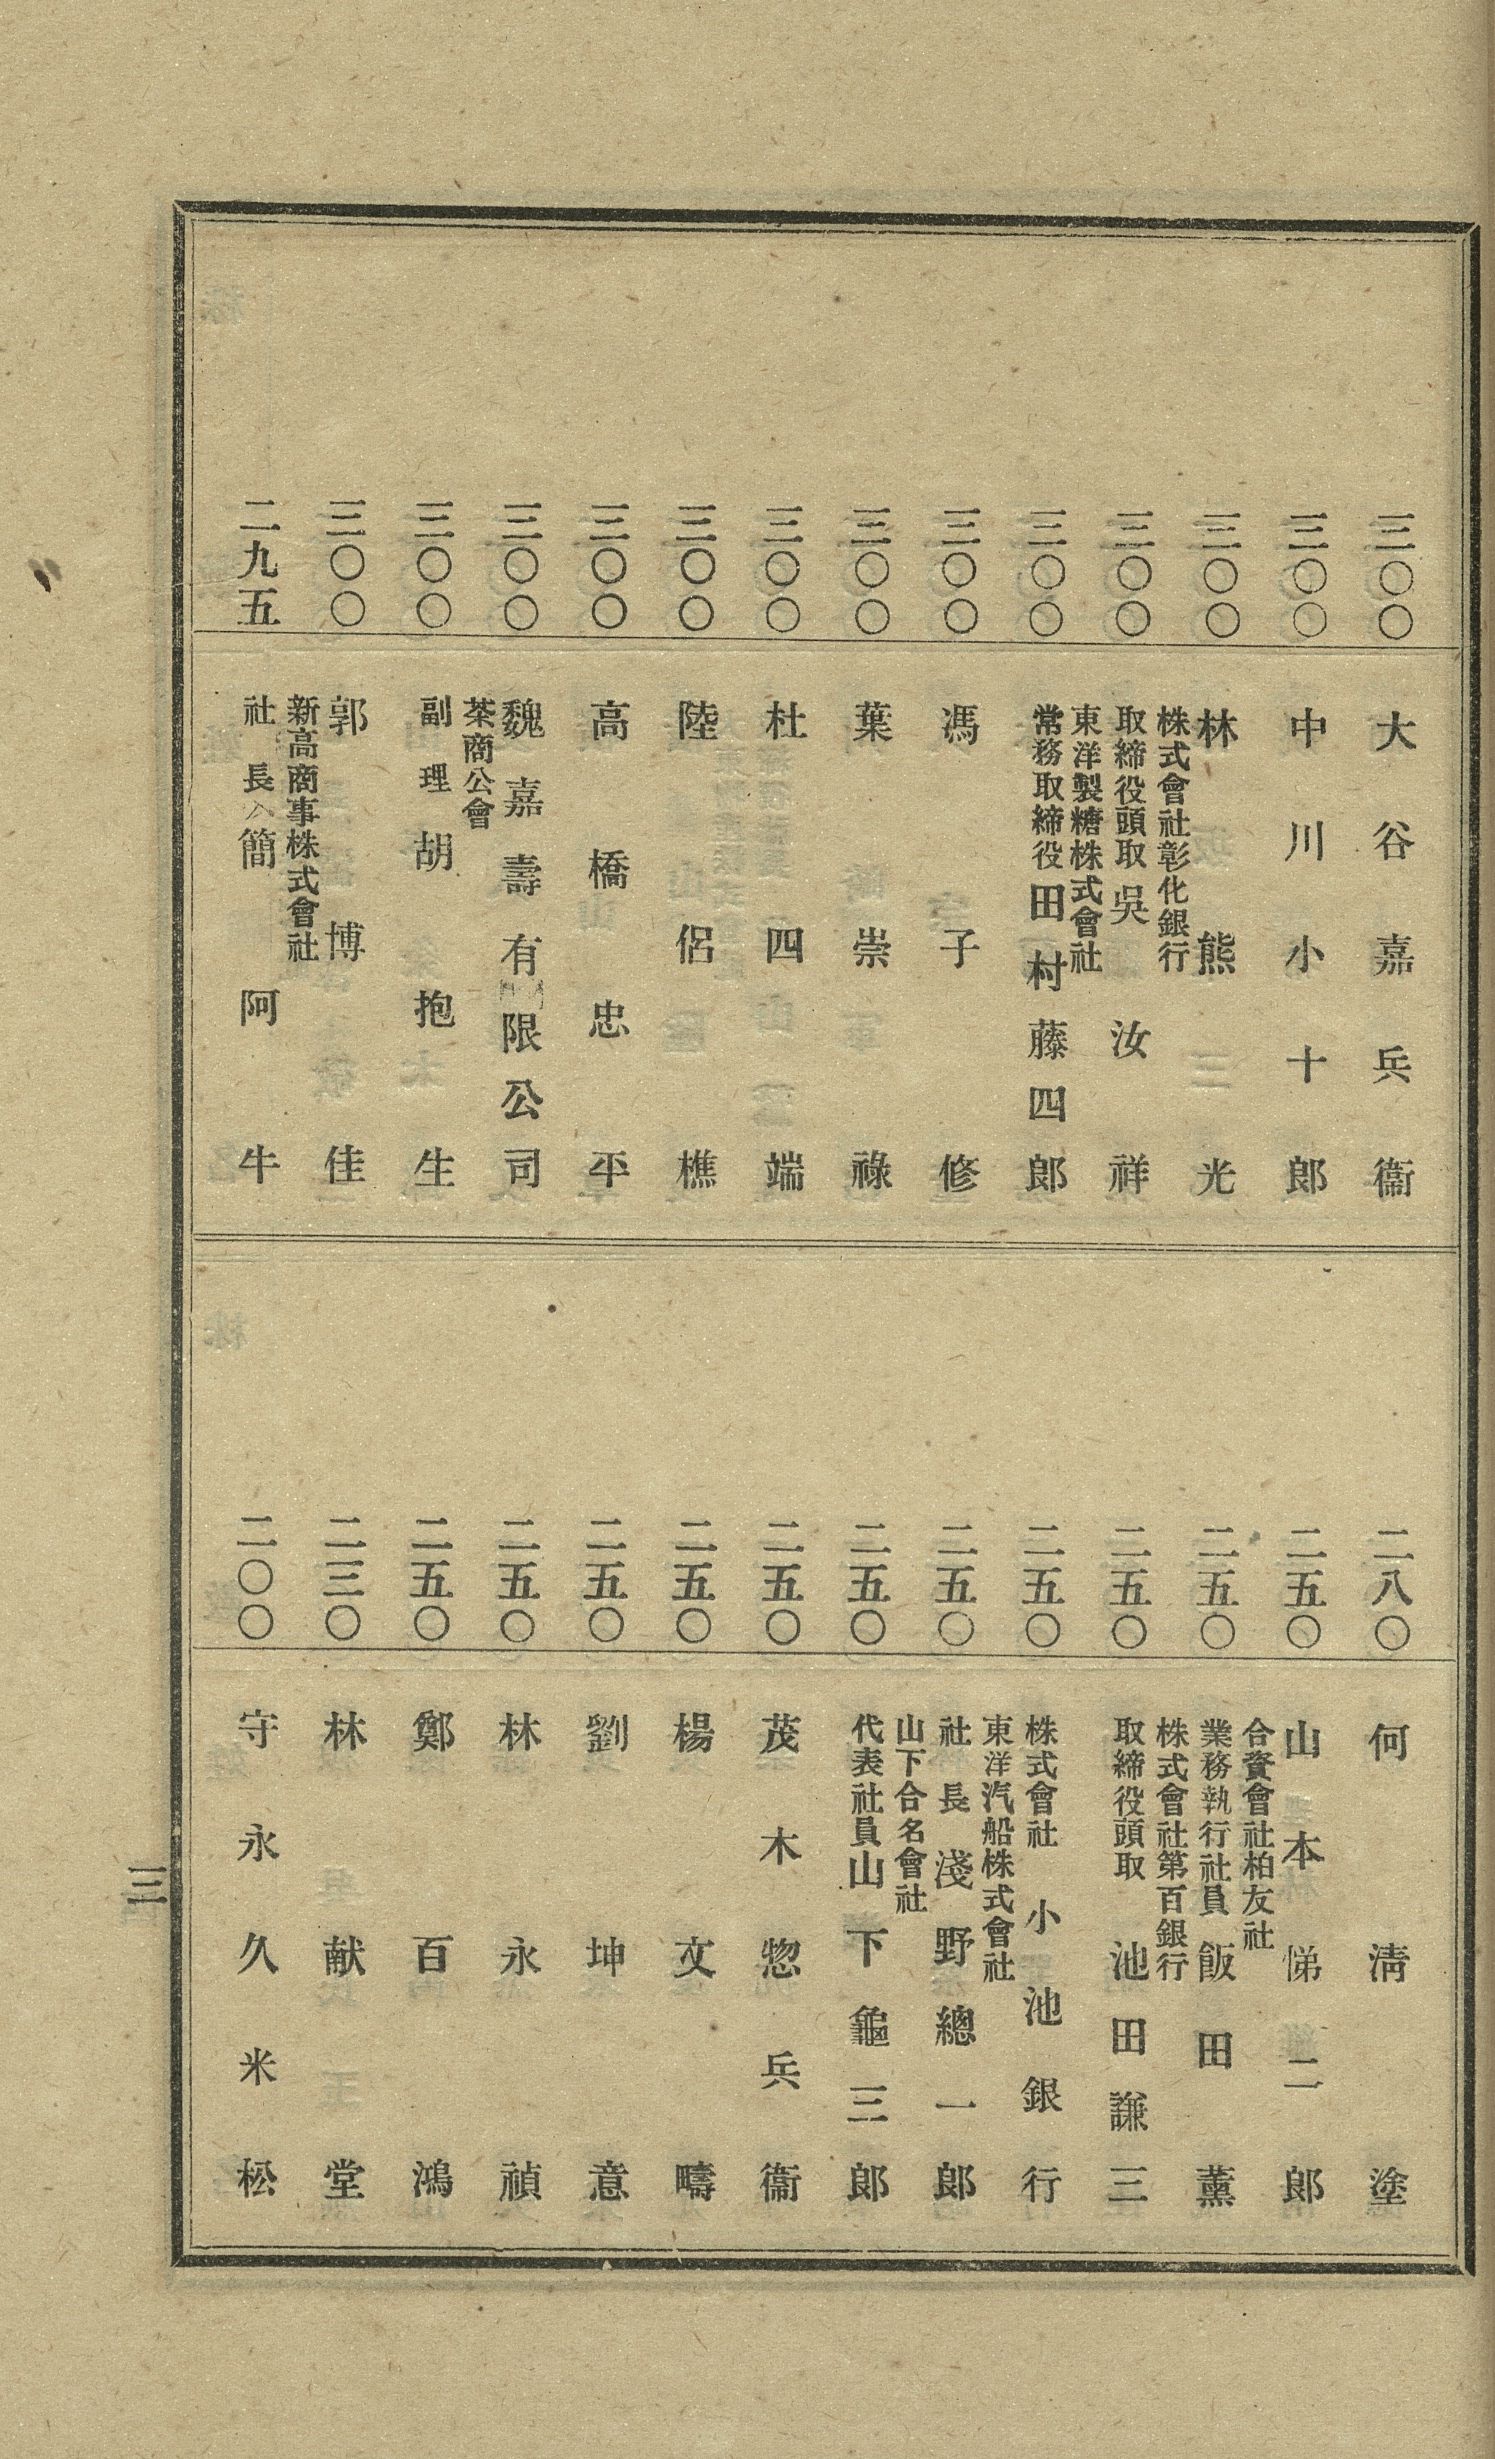 三〇〇 大谷嘉兵衞
三〇〇 中川小十郎
三〇〇 林熊光
三〇〇 株式會社彰化銀行取締役頭取 吳汝祥
三〇〇 東洋製糖株式會社常務取締役 田村藤四郎
三〇〇 馮子修
三〇〇 葉崇祿
三〇〇 杜四端
三〇〇 陸侶樵
三〇〇 高橋忠平
三〇〇 魏嘉壽有限公司
三〇〇 茶商公會副理 胡抱生
三〇〇 郭博佳
二九五 新高商事株式會社社長 簡阿牛
二八〇 何淸塗
二五〇 山本悌二郎
二五〇 合資會社柏友社業務執行社員 飯田薰
二五〇 株式會社第百銀行取締役頭取 池田謙三
二五〇 株式會社 小池銀行
二五〇 東洋汽船株式會社社長 淺野總一郎
二五〇 山下合名會社代表社員 山下龜三郎
二五〇 茂木惣兵衞
二五〇 楊文疇
二五〇 劉坤意
二五〇 林永禎
二五〇 鄭百鴻
二三〇 林献堂
二〇〇 守永久米松
三